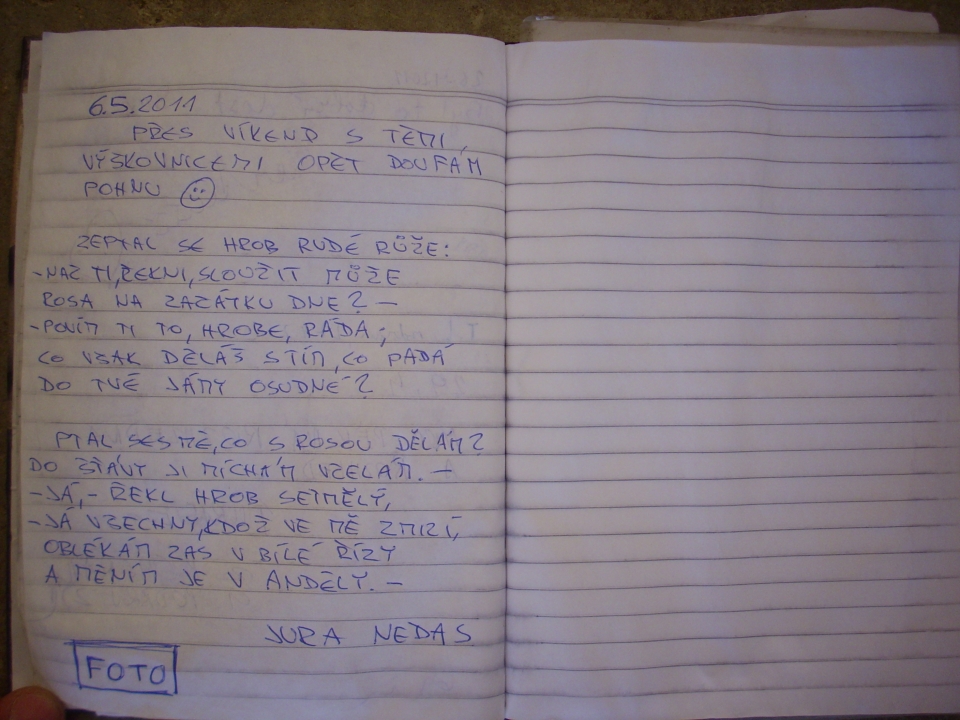 6.5.2011
PŘES VÍKEND S TĚMI
VÝŠKOVNICEMI OPĚT DOUFÁM
POHNU
ZEPTAL SE HROB RUDÉ RŮŽE:
-NAČ TI, ŘEKNI, SLOUŽIT MŮŽE
ROSA NA ZAČÁTKU DNE? -
-POVÍM TI TO, HROBE, RÁDA;
CO VŠAK DĚLÁŠ S TÍM, CO PADÁ
DO TVÉ JÁMY OSUDNÉ?
PTAL SES MĚ, CO S ROSOU DĚLÁM?
DO ŠŤÁVY JI MÍCHÁM VČELÁM. -
-JÁ, - ŘEKL HROB SETMĚLÝ,
-JÁ VŠECHNY, KDOŽ VE MĚ ZMIZÍ,
OBLÉKÁM ZAS V BÍLÉ ŘÍZY
A MĚNÍM JE V ANDĚLY. -
JURA NEDAS
FOTO